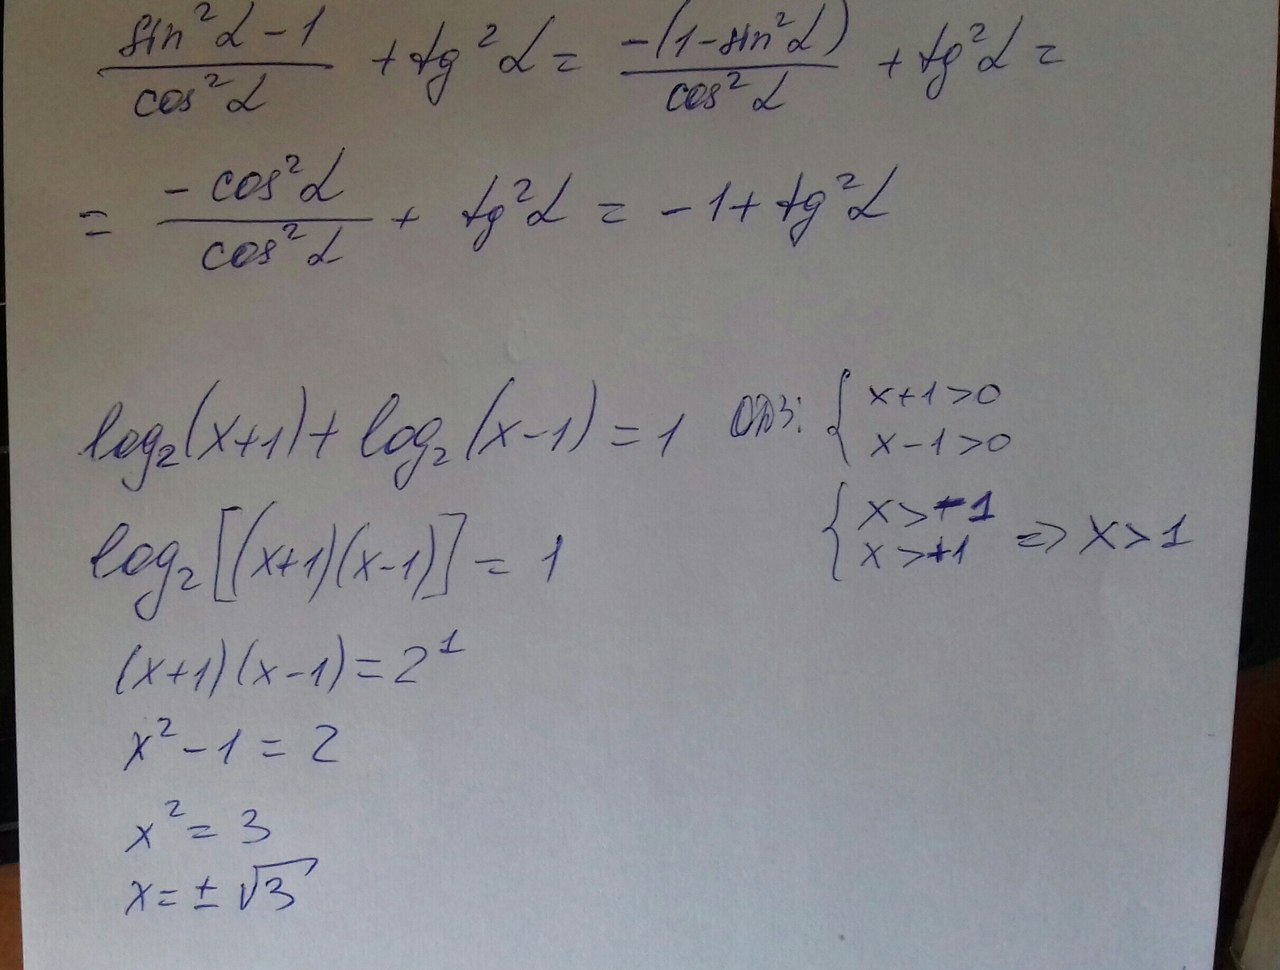 (sin²α - 1)/cos²α + tg²α = (-(1 - sin²α))/cos²α + tg²α =
= (-cos²α)/cos²α + tg²α = -1 + tg²α
log₂(x+1) + log₂(x-1) = 1 ОДЗ: { x+1>0
x-1>0
log₂[(x+1)(x-1)] = 1
{ x>-1
x>+1 => x>1
(x+1)(x-1) = 2¹
x² - 1 = 2
x² = 3
x = ± √3